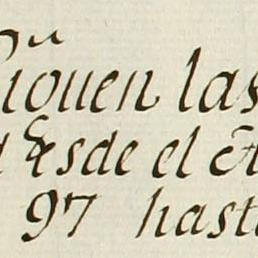 Siguen las
desde el
97 hasta